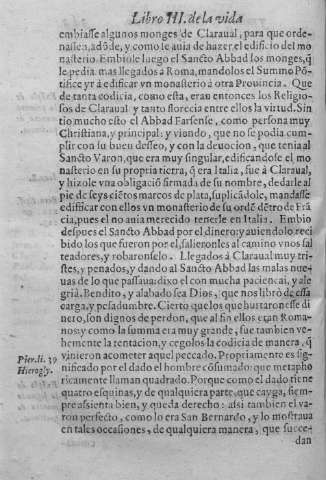 Libro III. de la vida
embiasse algunos monges de Claraual, para que orde-
nasse a, adõde, y como le auia de hazer el edificio del mo
nasterio Embiole luego el Sancto Abbad los monges, q̃
le pedia mas llegados a Roma, mandolos el Summo Põ-
tifice yr à edificar vn monasterio à otra Prouincia. Que
de tanta codicia, como esta, eran entonces los Religio-
sos de Claraual y tanto florecia entre ellos la virtud. Sin
tio mucho esto el Abbad Farsense, como persona muy
Christiana, y principal: y viendo, que no se podia cum-
plir con su buen desseo, y con la deuocion, que tenia al
Sancto Varon, que era muy singular, edificandose el mo
nasterio en su propria tierra, q̃ era Italia, fue á Claraual,
y hizole vna obligació firmada de su nombre, de darle al
pie de seys ciẽtos marcos de plata, suplicãdole, mandasse
edifficar con ellos vn monasterio de su ordẽ dẽtro de Frã
cia, pues el no auia merecido tenerle en Italia. Embio
despues el Sancto Abbad por el dinero: y auiendolo reci
bido los que fueron por el, salieronles al camino vnos sal
teadores, y robaronselo. Llegados á Claraual muy tri-
stes, y penados, y dando al Sancto Abbad las malas nue-
uas de lo que passaua: dixo el con mucha paciencai, y ale
gria. Bendito, y alabado sea Dios, que nos libró de essa
carga, y pesadumbre. Cierto que los que hurtaron esse di
nero, son dignos de perdon, que al fin ellos eran Roma-
nos: y como la summa era muy grande, fue tambien ve-
hemente la tentacion, y cegolos la codicia de manera, q̃
vinieron acometer aquel peccado. Propriamente es sig-
Pier. li. 39
Hierogly.
nificado por el dado el hombre cõsumado: que metapho
ricamente llaman quadrado. Porque como el dado tiene
quatro esquinas, y de qualquiera parte, que cayga, siem-
pre assienta bien, y queda derecho: assi tambien el va-
ron perfecto, como lo era San Bernardo, y lo mostraua
en tales occasiones, de qualquiera manera, que succe-
dan